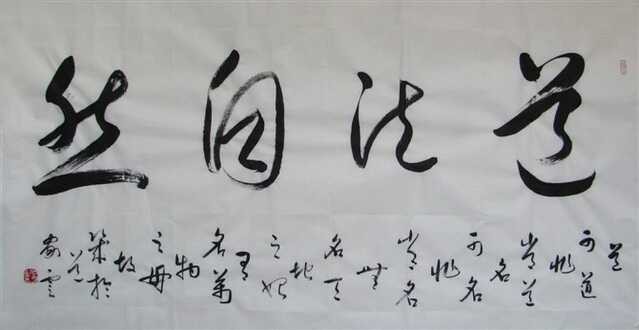 道法自然
道
可道
非
常道
名
可名
非
常名
無
名天
地
之始
有
名萬
物
之母
故
於
雲